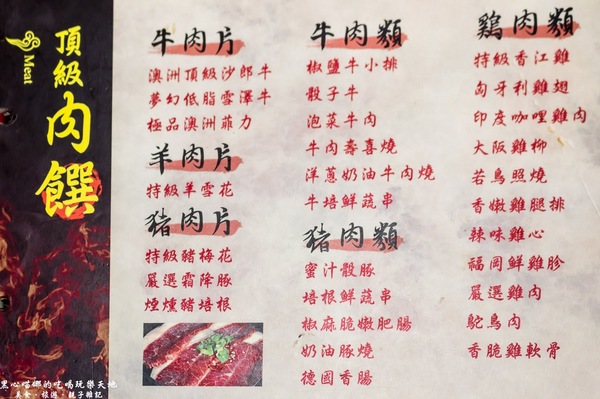 頂級肉饌
Meat
牛肉片
澳洲頂級沙郎牛
夢幻低脂雪澤牛
極品澳洲菲力
羊肉片
特級羊雪花
豬肉片
特級豬梅花
嚴選霜降豚
煙燻豬培根
牛肉類
椒鹽牛小排
骰子牛
泡菜牛肉
牛肉壽喜燒
洋蔥奶油牛肉燒
牛培鮮蔬串
豬肉類
蜜汁骰豚
培根鮮蔬串
椒麻脆嫩肥腸
奶油豚燒
德國香腸
鷄肉類
特級香江雞
匈牙利雞翅
印度咖哩雞肉
大阪雞柳
若鳥照燒
香嫩雞腿排
辣味雞心
福岡鮮雞胗
嚴選雞肉
鴕鳥肉
香脆雞軟骨
黑心喵娜的吃喝玩樂天地
美食·旅遊·親子雜記